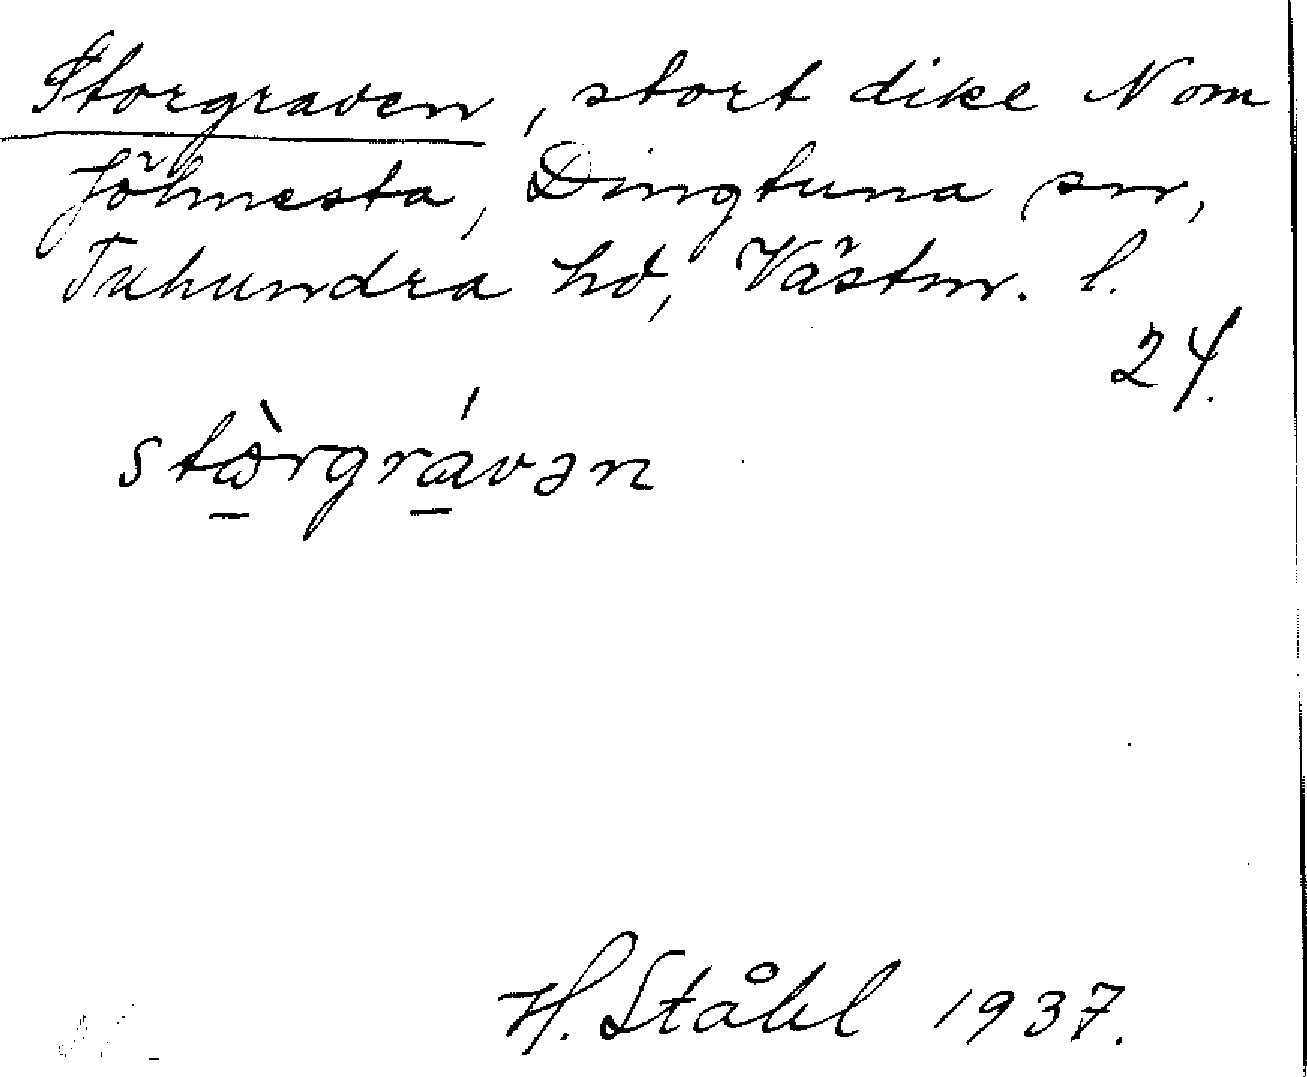 Storgraven, stort dike N om
Jöhnesta, Dingtuna sn,
Tuhundra hd, Västm. l.
24.
stòrgrávən
H. Ståhl 1937.